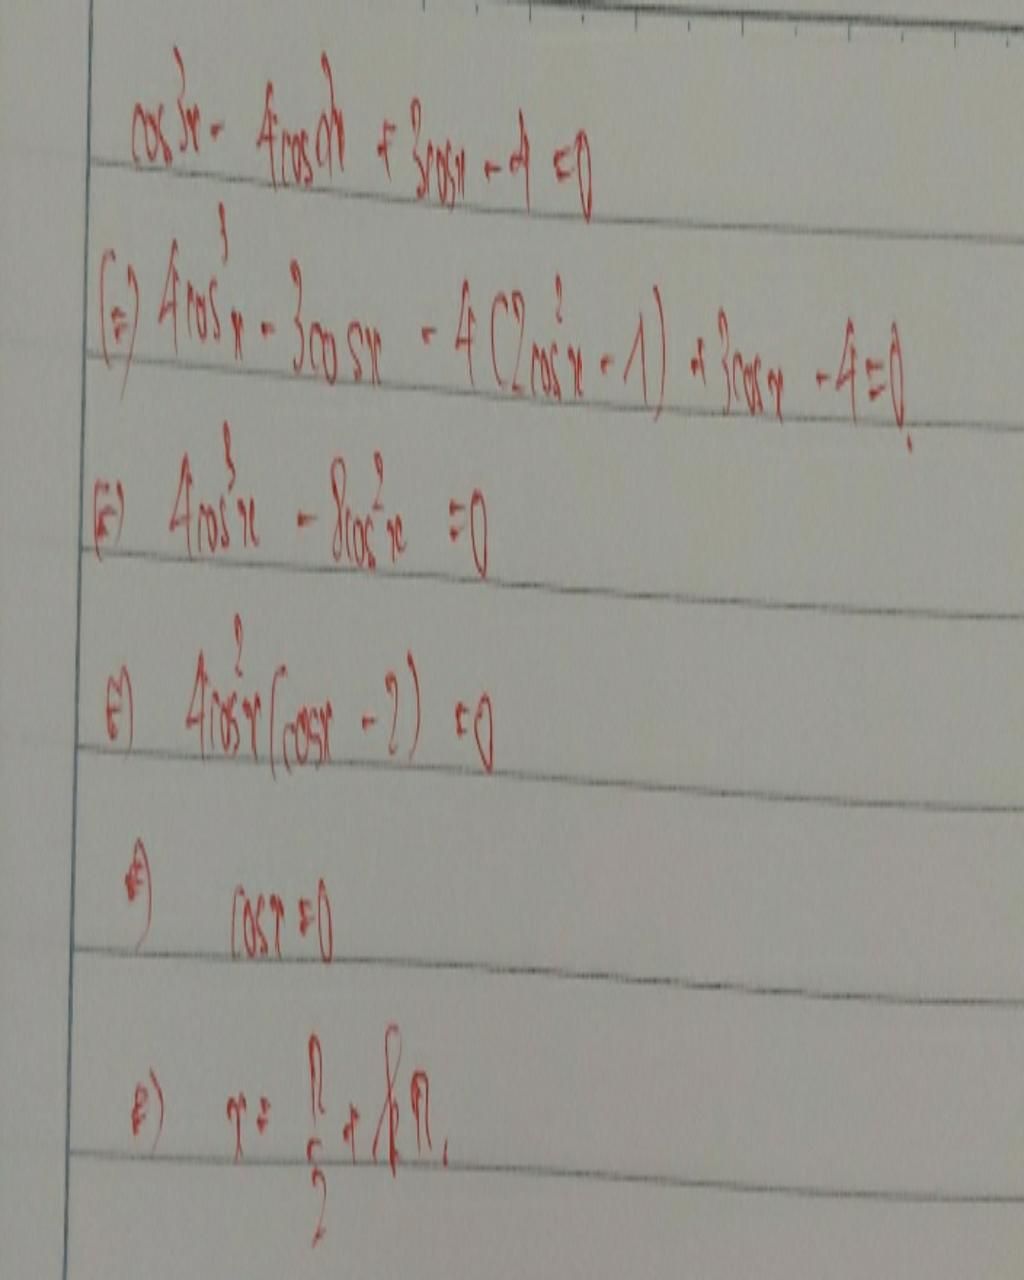 cos3x - 4cos2x + 3cosx - 4 = 0
(=) 4cos³x - 3cosx - 4(2cos²x - 1) + 3cosx - 4 = 0.
(=) 4cos³x - 8cos²x = 0
(=) 4cos²x(cosx - 2) = 0
(=) cosx = 0
(=) x = π/2 + kπ.